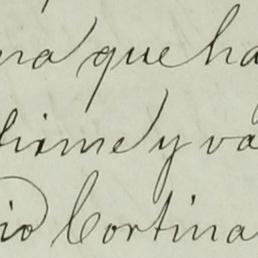 na que ha
firme y va
io Cortina